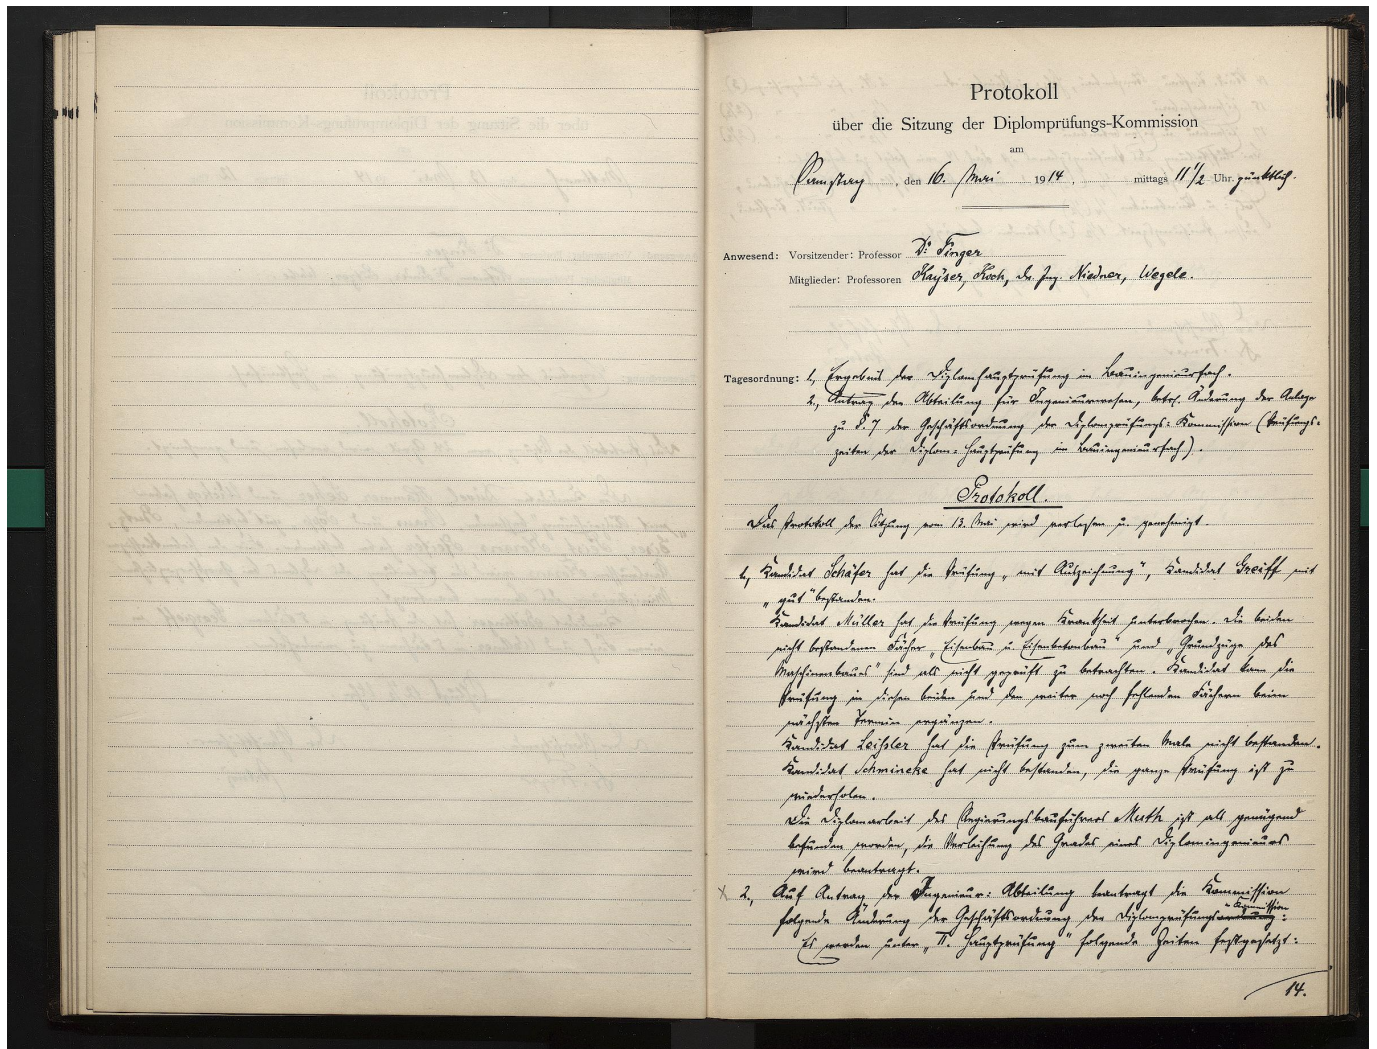 Protokoll
über die Sitzung der Diplomprüfungs-Kommission
am
Samstag, den 16. Mai 1914, mittags 11 1/2 Uhr. pünktlich.
Anwesend: Vorsitzender: Professor Dr. Finger
Mitglieder: Professoren Kayser, Koch, Dr. Ing. Niedner, Wegele.
Tagesordnung: 1, Ergebnis der Diplomhauptprüfung im Bauingenieurfach.
2., Antrag der Abteilung für Ingenieurwesen, betr. Änderung der Anlage
zu §. 7 der Geschäftsordnung der Diplomprüfungs-Kommission (Prüfungs-
zeiten der Diplom-Hauptprüfung im Bauingenieurfach).
Protokoll.
Das Protokoll der Sitzung vom 13. Mai wird verlesen u. genehmigt.
1, Kandidat Schäfer hat die Prüfung „mit Auszeichnung", Kandidat Greiff mit
„gut" bestanden.
Kandidat Müller hat die Prüfung wegen Krankheit unterbrochen. Die beiden
nicht bestandenen Fächer „Eisenbau u. Eisenbetonbau" und „Grundzüge des
Maschinenbaues" sind als nicht geprüft zu betrachten. Kandidat kann die
Prüfung in diesen beiden und den weiter noch fehlenden Fächern beim
nächsten Termin ergänzen.
Kandidat Leißler hat die Prüfung zum zweiten Male nicht bestanden.
Kandidat Schmincke hat nicht bestanden, die ganze Prüfung ist zu
wiederholen.
Die Diplomarbeit des Regierungsbauführers Muth ist als genügend
befunden worden, die Verleihung des Grades eines Diplomingenieurs
wird beantragt.
X 2., Auf Antrag der Ingenieur-Abteilung beantragt die Kommission
folgende Änderung der Geschäftsordnung der Diplomprüfungs-Kommission:
Es werden unter „II. Hauptprüfung" folgende Zeiten festgesetzt:
14.